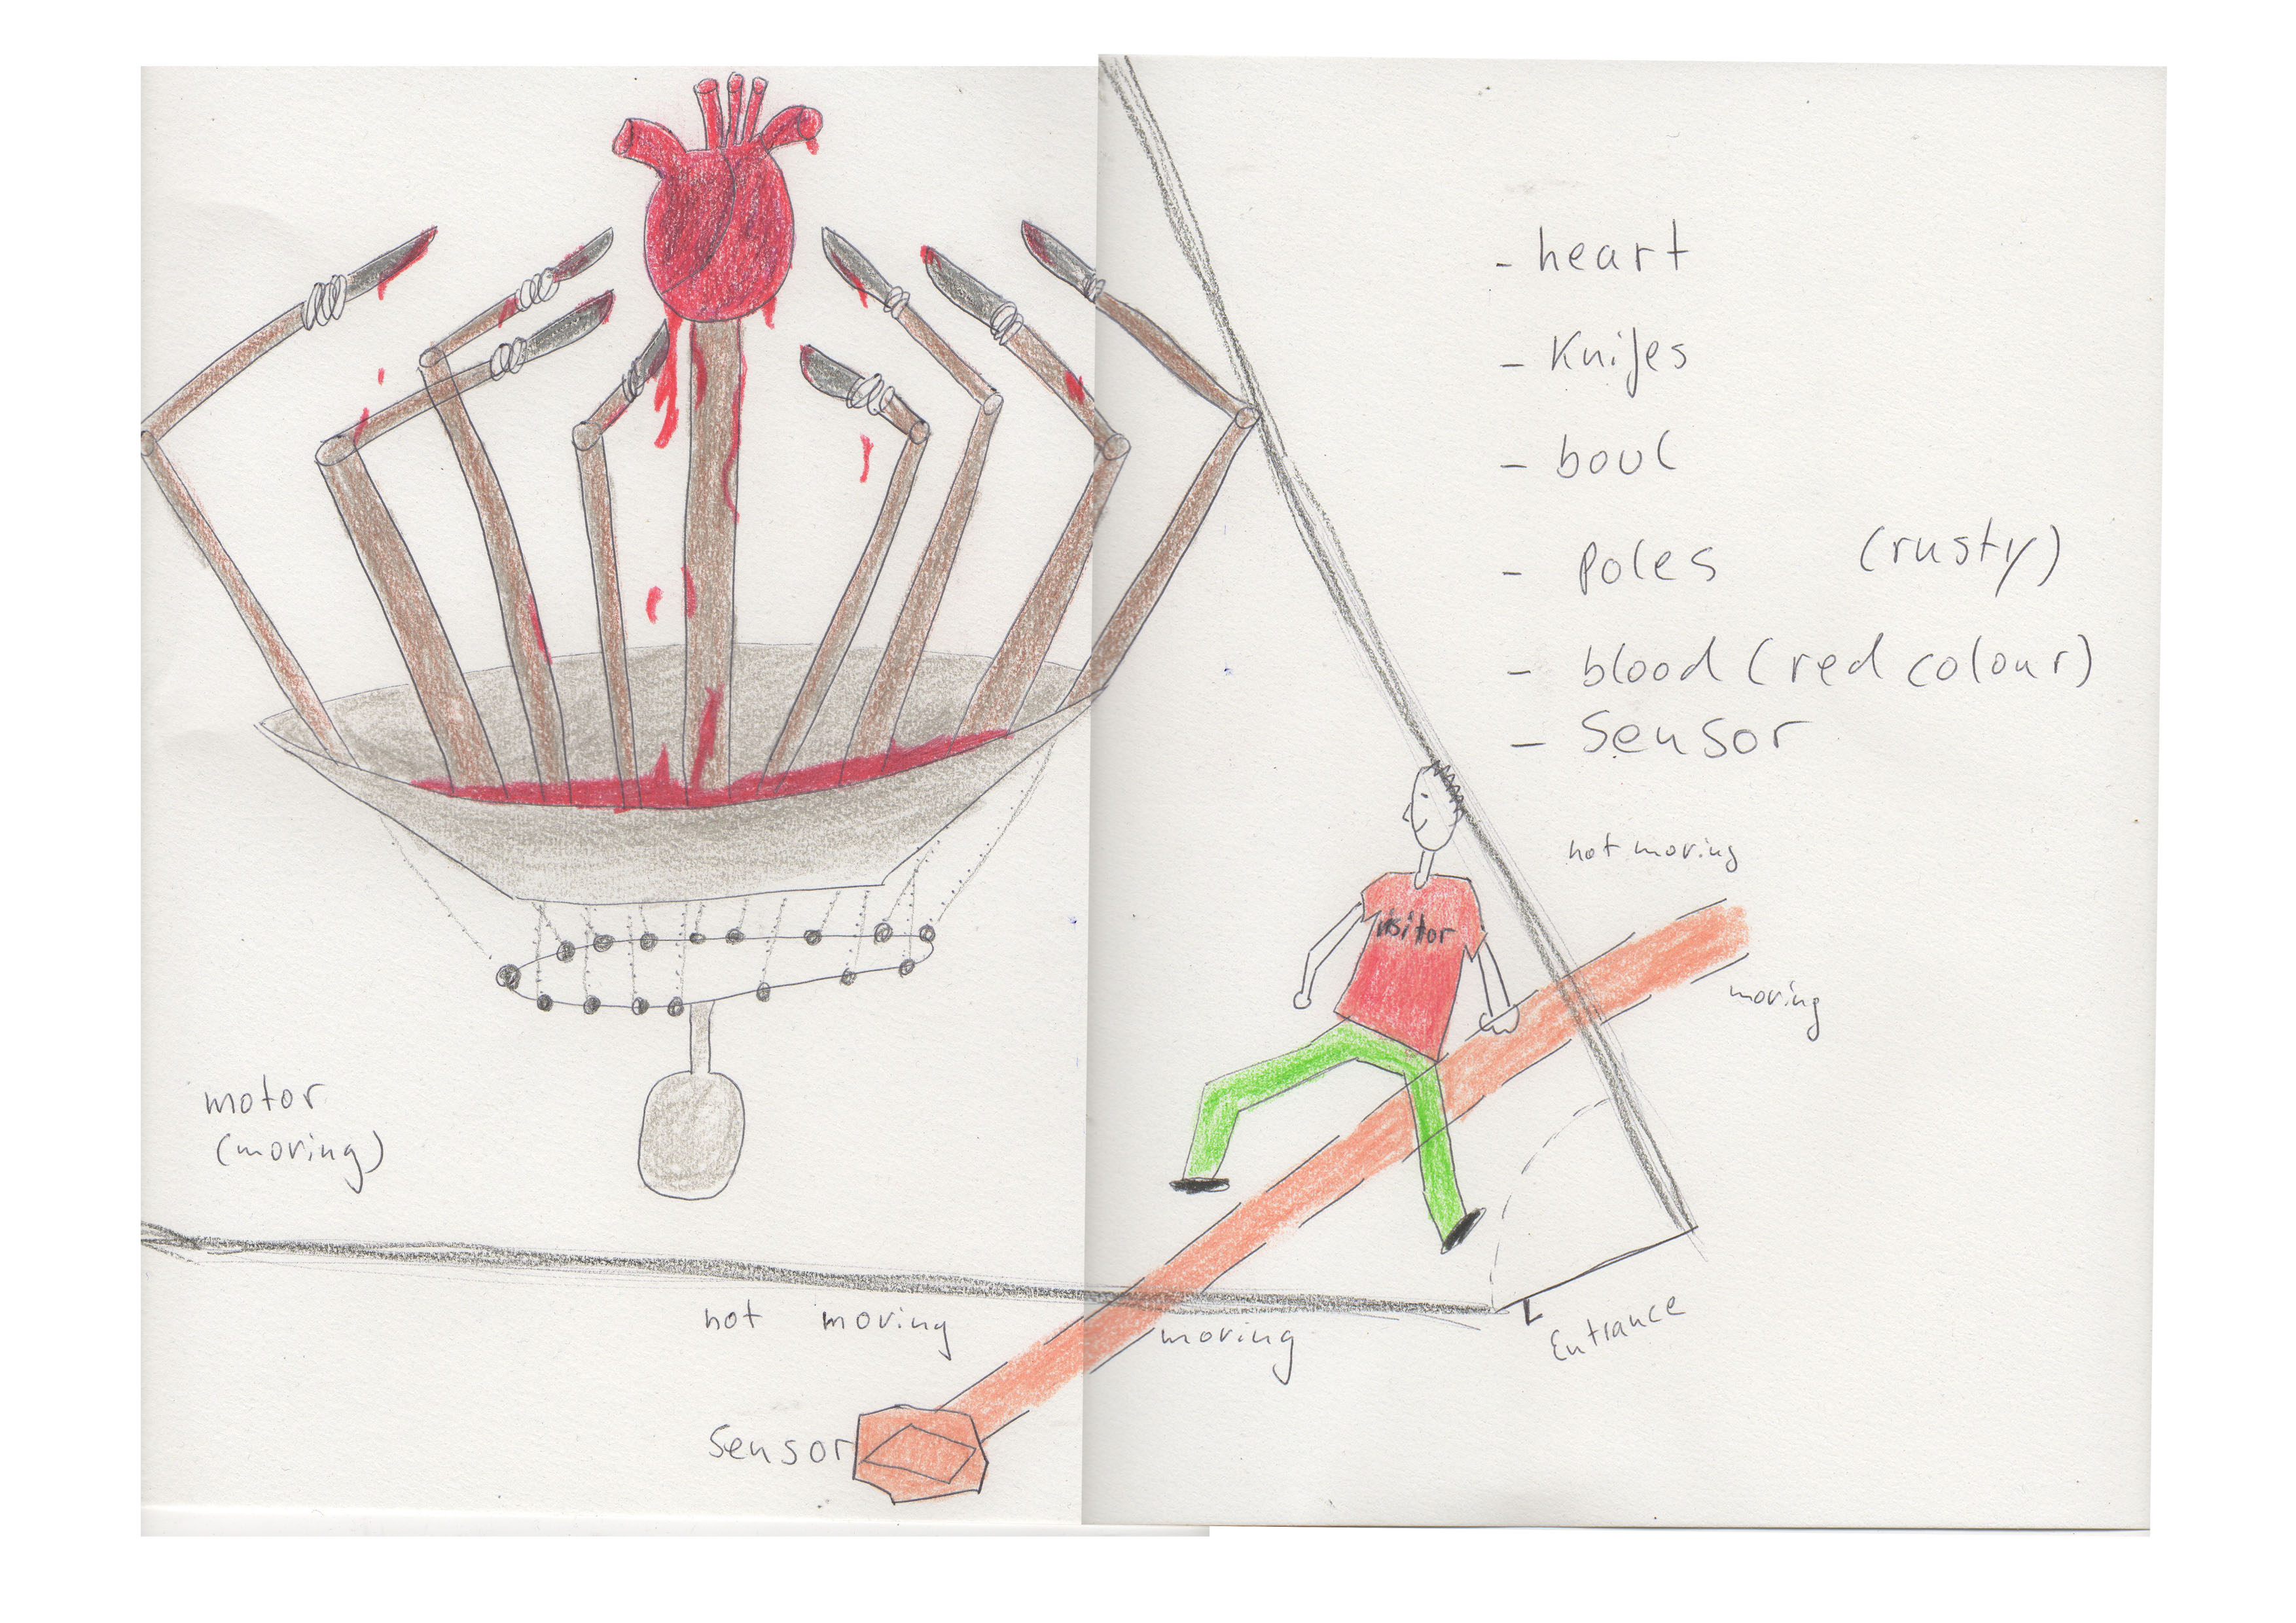 - heart
- Knifes
- boul
- poles (rusty)
- blood (red colour)
- Sensor
not moving
visitor
moving
motor
(moving)
not moving
moving
Entrance
Sensor